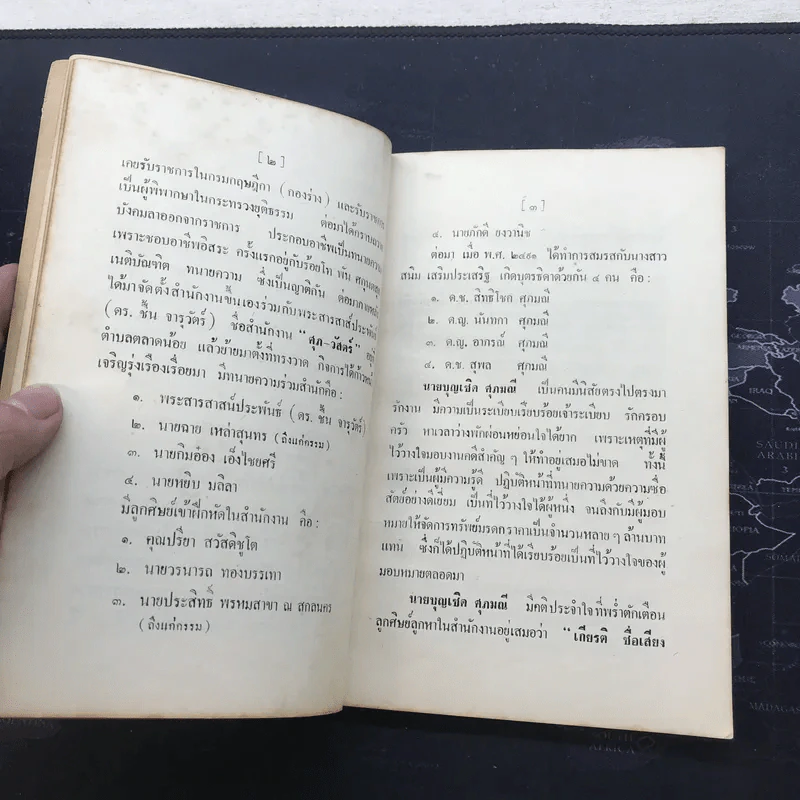 [ ๒ ]
เคยรับราชการในกรมกฤษฎีกา (กองร่าง) และรับราชการ
เป็นผู้พิพากษาในกระทรวงยุติธรรม ต่อมาได้กราบถวาย
บังคมลาออกจากราชการ ประกอบอาชีพเป็นทนายความ
เพราะชอบอาชีพอิสระ ครั้งแรกอยู่กับร้อยโท พัน
เนติบัณฑิต ทนายความ ซึ่งเป็นญาติกัน ต่อมาภายหลัง
ได้มาจัดตั้งสำนักงานขึ้นเองร่วมกับพระสารสาส์ประพันธ์
(ดร. ชื้น จารุวัตร์) ชื่อสำนักงาน "ศุภ-วัสดร์" อยู่
ตำบลตลาดน้อย แล้วย้ายมาตั้งที่ทรงวาด กิจการได้ก้าวหน้า
เจริญรุ่งเรืองเรื่อยมา มีทนายความร่วมสำนักคือ:
๑. พระสารสาสน์ประพันธ์ (ดร. ชื้น จารุวัตร์)
๒. นายฉาย เหล่าสุนทร (ถึงแก่กรรม)
๓. นายกิมอ๋อง เอ็งไชยศรี
๔. นายหยิบ มลิลา
มีลูกศิษย์เข้าฝึกหัดในสำนักงาน คือ:
๑. คุณปรียา สวัสดิชูโต
๒. นายวรนารถ ทองบรรเทา
๓. นายประสิทธิ์ พรหมสาขา ณ สกลนคร
(ถึงแก่กรรม)
[ ๓ ]
๔. นายภักดี ยงวานิช
ต่อมา เมื่อ พ.ศ. ๒๔๙๑ ได้ทำการสมรสกับนางสาว
สนิม เสริมประเสริฐ เกิดบุตรธิดาด้วยกัน ๔ คน คือ:
๑. ด.ช. สิทธิโชก ศุภมณี
๒. ด.ญ. นันทกา ศุภมณี
๓. ด.ญ. อาภรณ์ ศุภมณี
๔. ด.ช. สุพล ศุภมณี
นายบุญเชิด ศุภมณี เป็นคนมีนิสัยตรงไปตรงมา
รักงาน มีความเป็นระเบียบเรียบร้อยเจ้าระเบียบ รักครอบ
ครัว หาเวลาว่างพักผ่อนหย่อนใจได้ยาก เพราะเหตุที่มีผู้
ไว้วางใจมอบงานคดีสำคัญ ๆ ให้ทำอยู่เสมอไม่ขาด ทั้งนี้
เพราะเป็นผู้มีความรู้ดี ปฏิบัติหน้าที่ทนายความด้วยความซื่อ
สัตย์อย่างดีเยี่ยม เป็นที่ไว้วางใจได้ผู้หนึ่ง จนถึงกับมีผู้มอบ
หมายให้จัดการทรัพย์มรดกราคาเป็นจำนวนหลาย ๆ ล้านบาท
แทน ซึ่งก็ได้ปฏิบัติหน้าที่ได้เรียบร้อยเป็นที่ไว้วางใจของผู้
มอบหมายตลอดมา
นายบุญเชิด ศุภมณี มีคติประจำใจที่พร่ำตักเตือน
ลูกศิษย์ลูกหาในสำนักงานอยู่เสมอว่า "เกียรติ ชื่อเสียง
SAUDI
ARABIA
IRAQ
MADAGAS
SOUTH
AFRICA